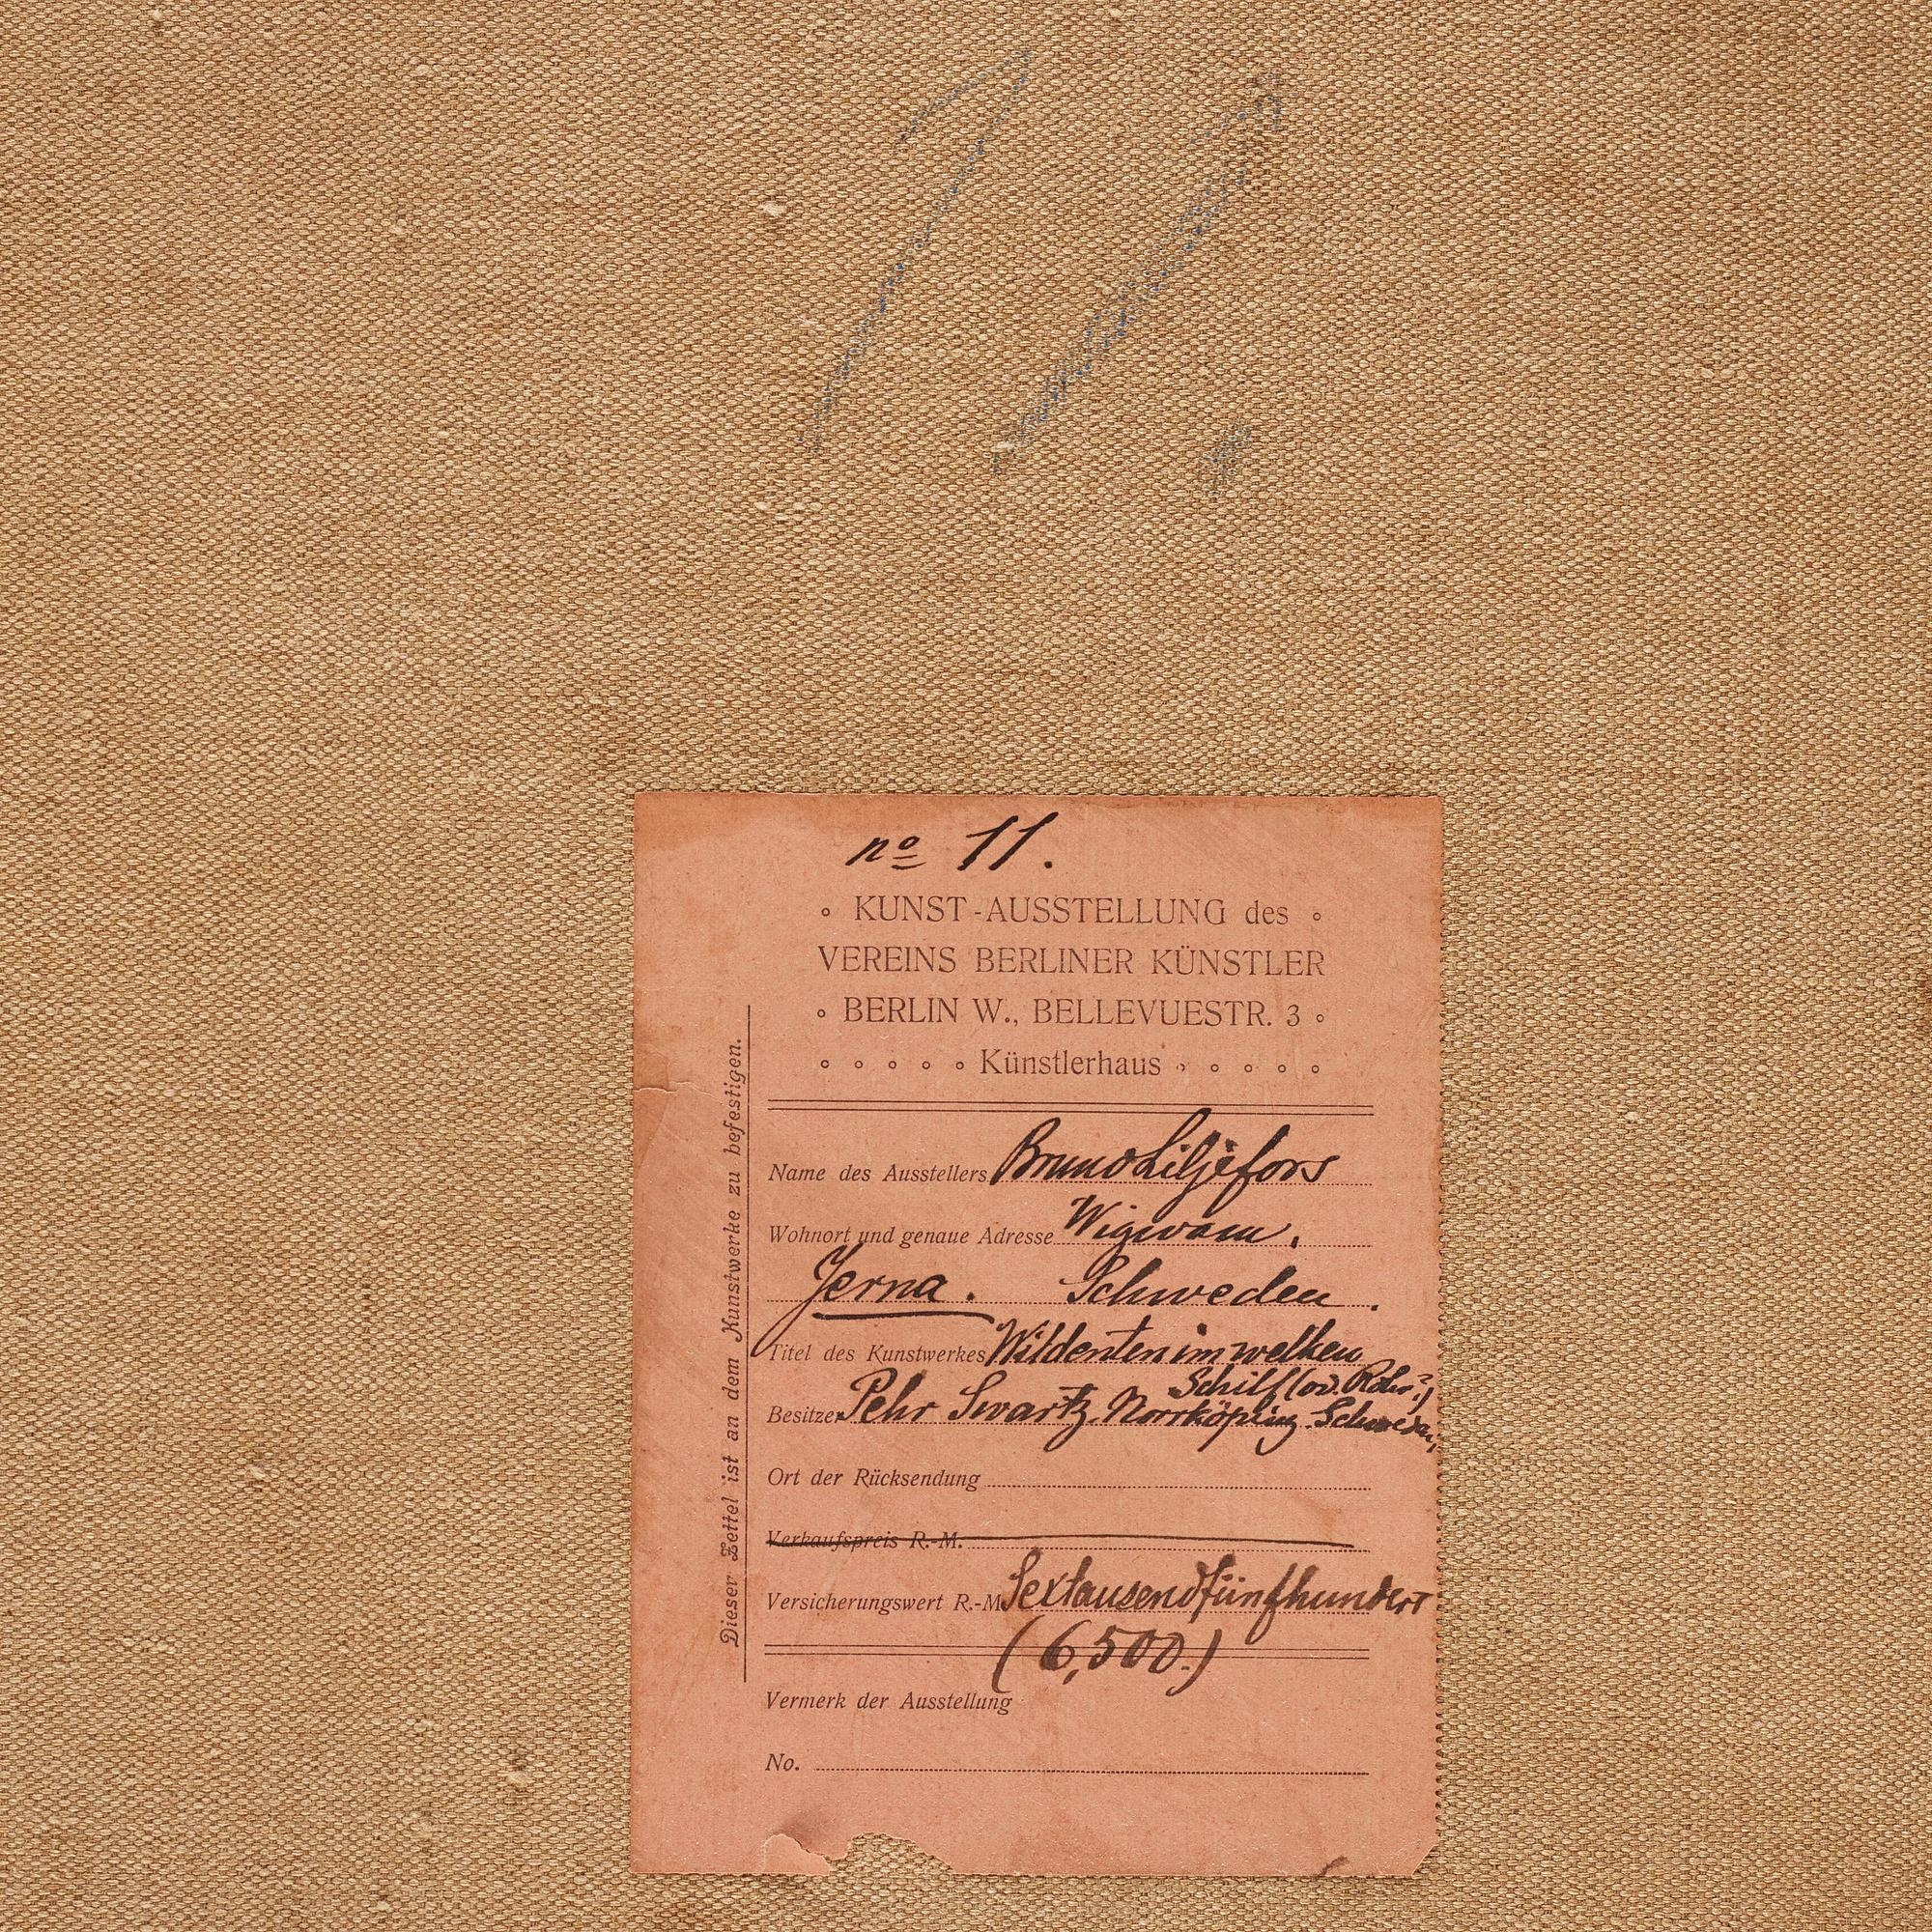 11.
nº 11.
◦ KUNST-AUSSTELLUNG des ◦
VEREINS BERLINER KÜNSTLER
◦ BERLIN W., BELLEVUESTR. 3 ◦
◦ ◦ ◦ ◦ ◦ Künstlerhaus ◦ ◦ ◦ ◦ ◦
Dieser Zettel ist an dem Kunstwerke zu befestigen.
Name des Ausstellers Bruno Liljefors
Wohnort und genaue Adresse Wigwam.
Jerna. Schweden.
Titel des Kunstwerkes Wildenten im welken
Schilf (od. Rohr?)
Besitzer Pehr Swartz. Norrköping. Schweden
Ort der Rücksendung
Verkaufspreis R.-M.
Versicherungswert R.-M. Sextausendfünfhundert
(6,500.)
Vermerk der Ausstellung
No.